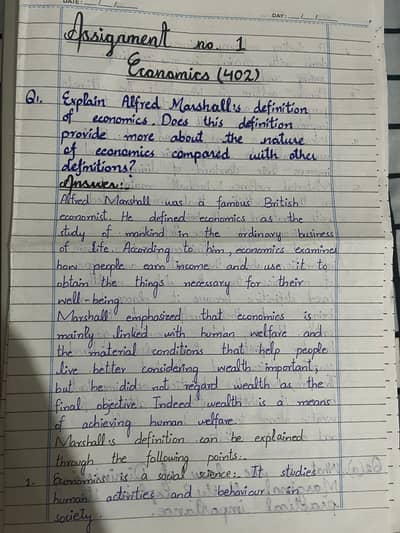 DATE: __/__/__ DAY: __/__/__
Assignment no. 1
Economics (402)
Q1. Explain Alfred Marshall's definition
of economics. Does this definition
provide more about the nature
of economics compared with other
definitions?
Answer:
Alfred Marshall was a famous British
economist. He defined economics as the
study of mankind in the ordinary business
of life. According to him, economics examines
how people earn income and use it to
obtain the things necessary for their
well-being.
Marshall emphasized that economics is
mainly linked with human welfare and
the material conditions that help people
live better considering wealth important,
but he did not regard wealth as the
final objective. Indeed wealth is a means
of achieving human welfare.
Marshall's definition can be explained
through the following points:
1. Economics is a social science:- It studies
human activities and behaviour in
society.